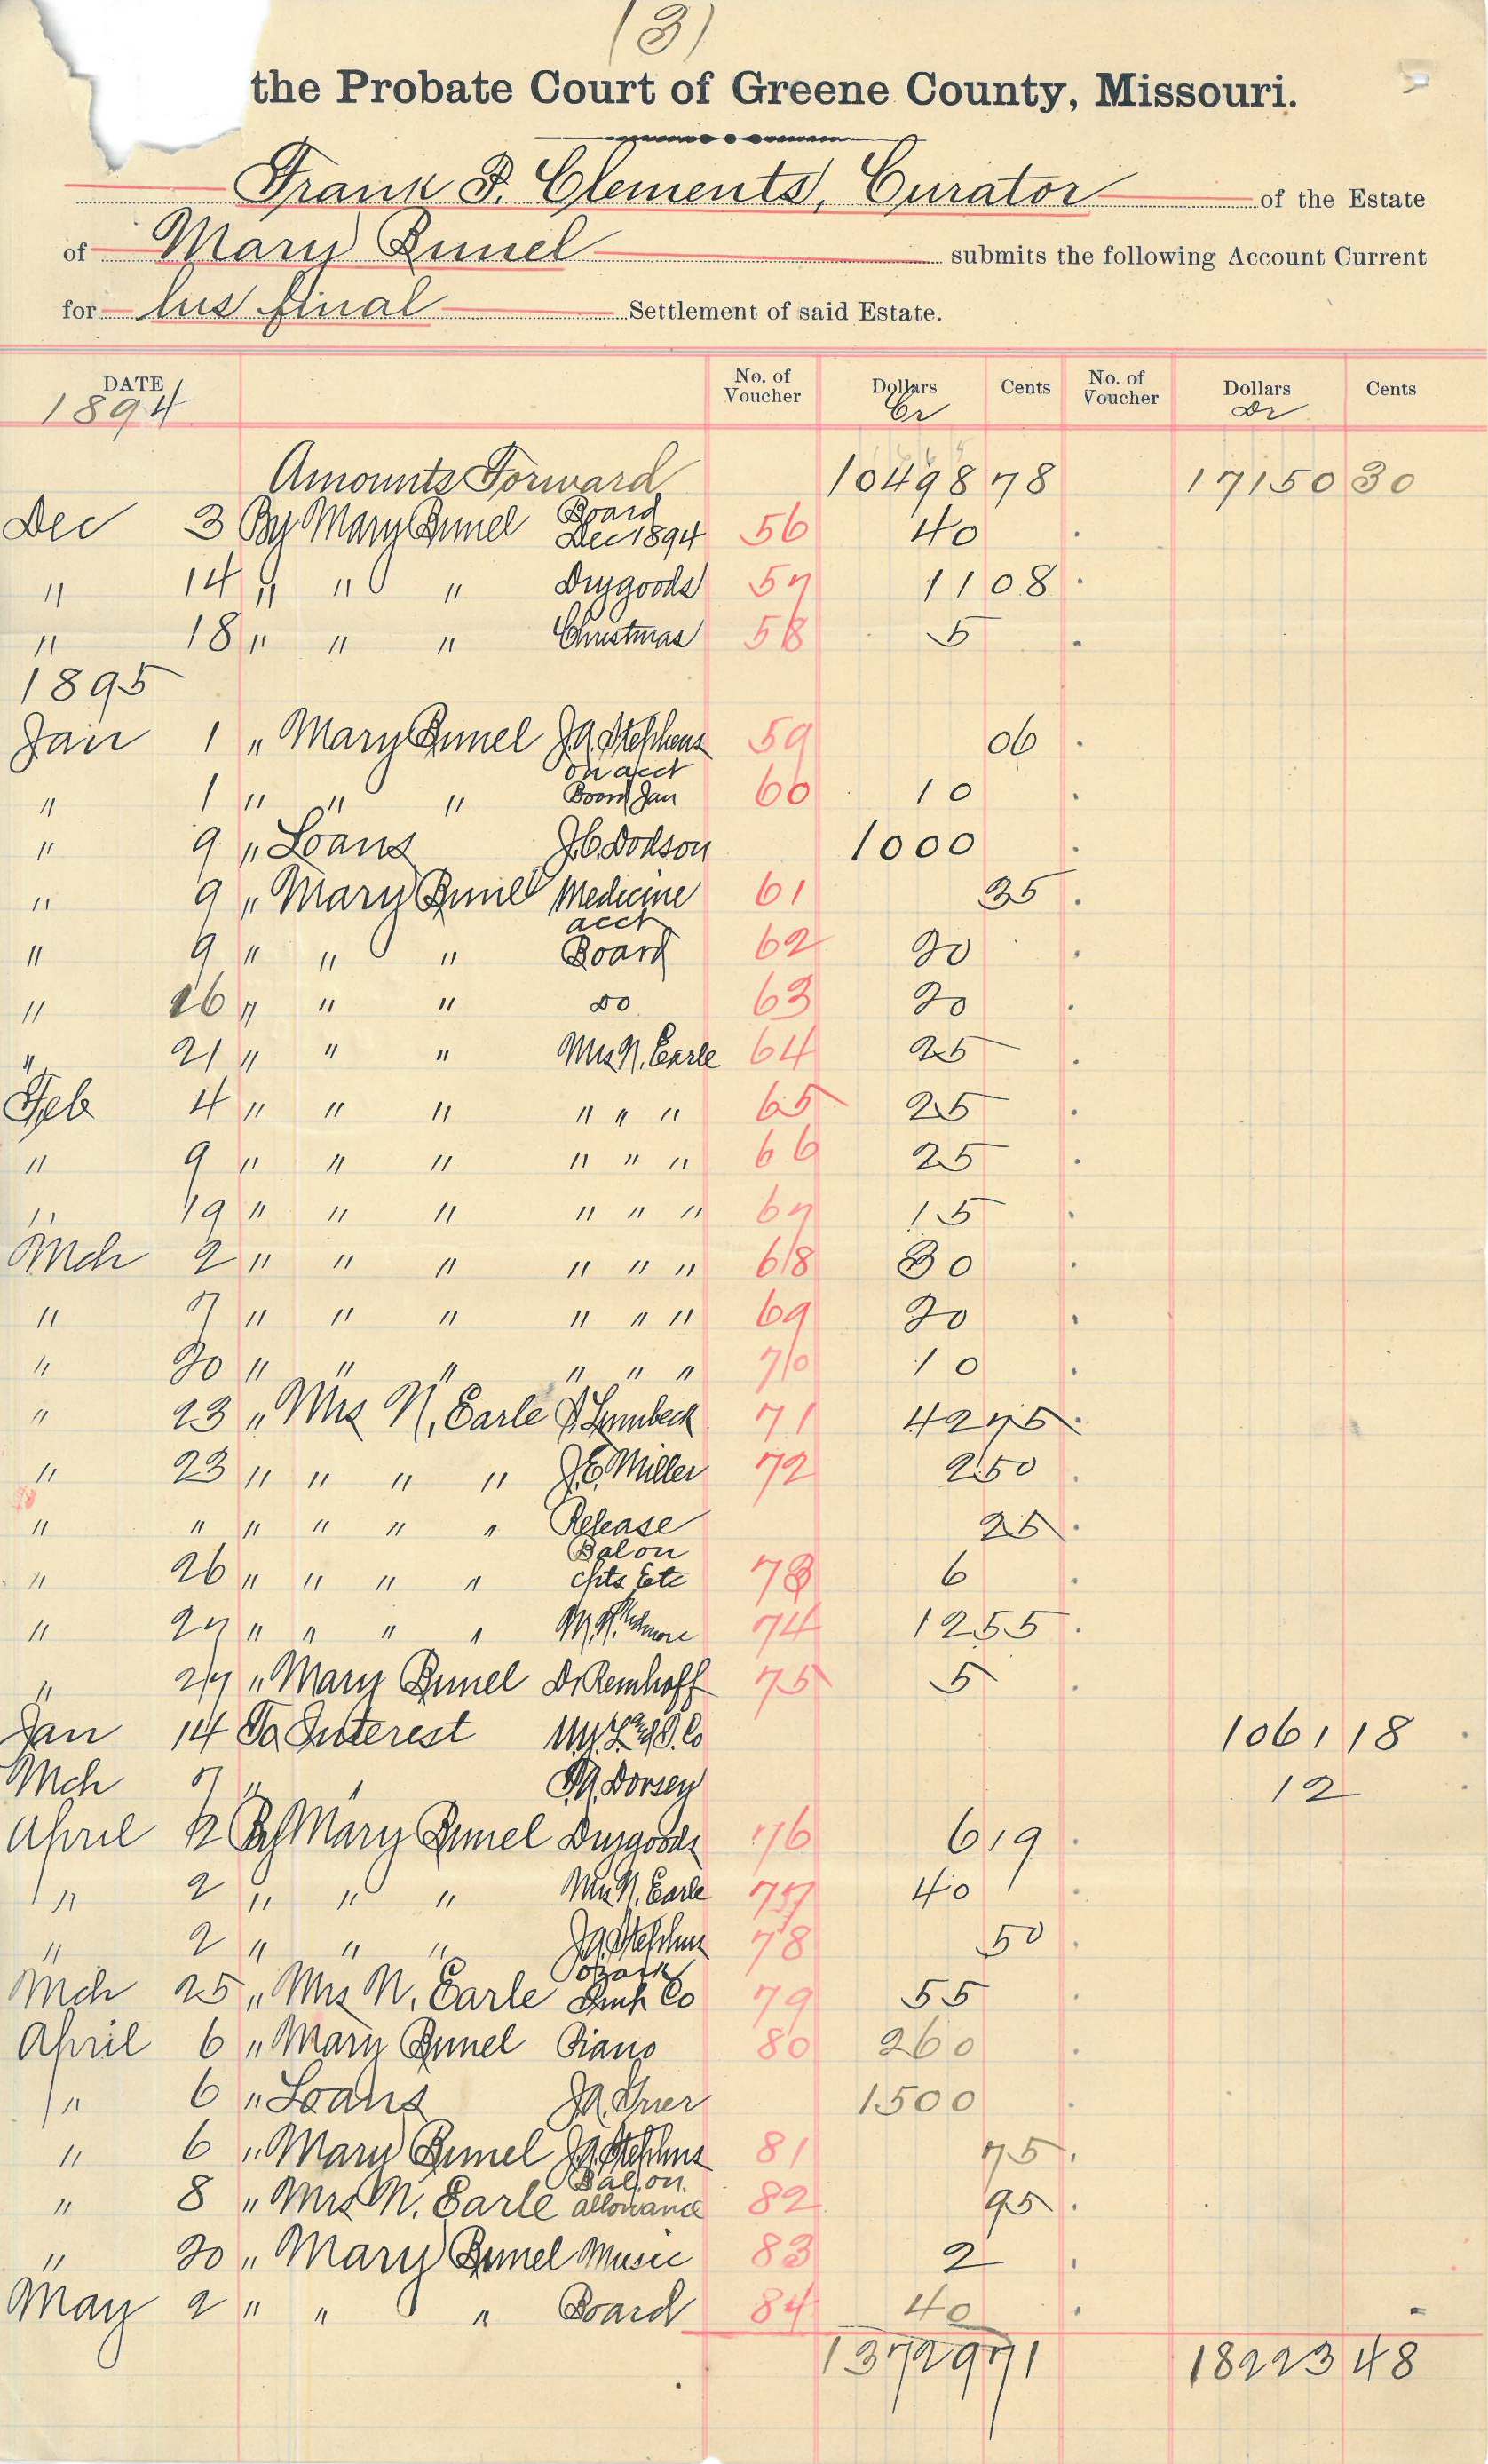 (3)
the Probate Court of Greene County, Missouri.
Frank P. Clements, Curator of the Estate
of Mary Bunel submits the following Account Current
for his final Settlement of said Estate.
DATE No. of Voucher Dollars Cents No. of Voucher Dollars Cents
1894 Cr Dr
Amounts Forward 10498 78 17150 30
Dec 3 By Mary Bunel Board Dec 1894 56 40
" 14 " " " Drygoods 57 11 08
" 18 " " " Christmas 58 5
1895
Jan 1 " Mary Bunel J.A. Stephens 59 06
" 1 " " " on acct Board Jan 60 10
" 9 " Loans J.C. Dodson 1000
" 9 " Mary Bunel Medicine 61 35
" 9 " " " acct Board 62 20
" 16 " " " do 63 20
" 21 " " " Mrs N. Earle 64 25
Feb 4 " " " " " " 65 25
" 9 " " " " " " 66 25
" 19 " " " " " " 67 15
Mch 2 " " " " " " 68 30
" 7 " " " " " " 69 20
" 20 " " " " " " 70 10
" 23 " Mrs N. Earle Lumbeck 71 42 75
" 23 " " " " J.E. Miller 72 2 50
" " " " " " Release 25
" 26 " " " " Bal on cpts Etc 73 6
" 27 " " " " M.N. 74 12 55
" 27 " Mary Bunel Dr Remhoff 75 5
Jan 14 To Interest Co 1061 18
Mch 7 " " Dorsey 12
April 2 By Mary Bunel Drygoods 76 6 19
" 2 " " " Mrs N. Earle 77 40
" 2 " " " J.A. Stephens 78 50
Mch 25 " Mrs N. Earle Ozark Imp Co 79 55
April 6 " Mary Bunel Piano 80 260
" 6 " Loans J.A. Grier 1500
" 6 " Mary Bunel J.A. Stephens 81 75
" 8 " Mrs N. Earle Bal on allowance 82 95
" 20 " Mary Bunel Music 83 2
May 2 " " " Board 84 40
13729 71 18223 48